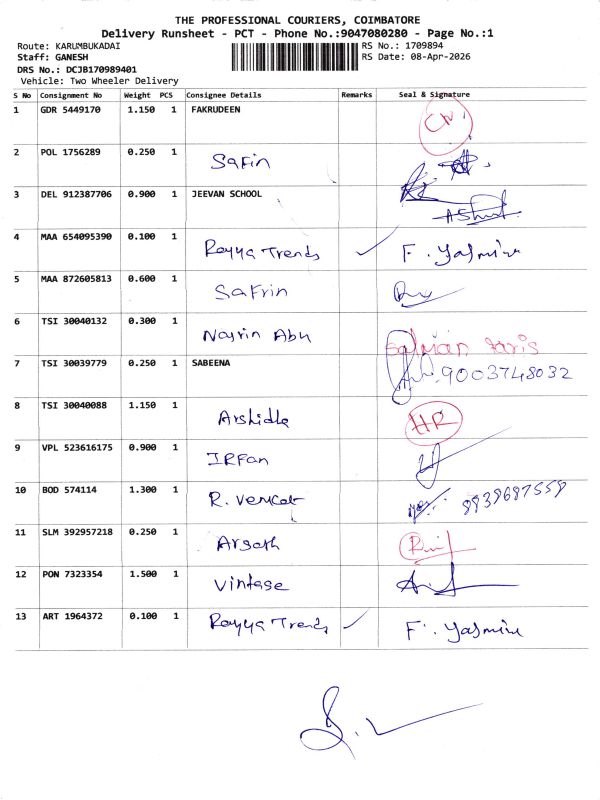 THE PROFESSIONAL COURIERS, COIMBATORE
Delivery Runsheet - PCT - Phone No.:9047080280 - Page No.:1
Route: KARUMBUKADAI RS No.: 1709894
Staff: GANESH RS Date: 08-Apr-2026
DRS No.: DCJB170989401
Vehicle: Two Wheeler Delivery
S No Consignment No Weight PCS Consignee Details Remarks Seal & Signature
1 GDR 5449170 1.150 1 FAKRUDEEN
2 POL 1756289 0.250 1 Safin
3 DEL 912387706 0.900 1 JEEVAN SCHOOL
4 MAA 654095390 0.100 1 Rayya Trends ✓ F. Yasmine
5 MAA 872605813 0.600 1 Safrin
6 TSI 30040132 0.300 1 Nasrin Abu Salman faris
7 TSI 30039779 0.250 1 SABEENA 9003748032
8 TSI 30040088 1.150 1 Arshidha HR
9 VPL 523616175 0.900 1 IRFan
10 BOD 574114 1.300 1 R. Venkat 9939697559
11 SLM 392957218 0.250 1 Arsath
12 PON 7323354 1.500 1 Vintase
13 ART 1964372 0.100 1 Rayya Trends ✓ F. Yasmine